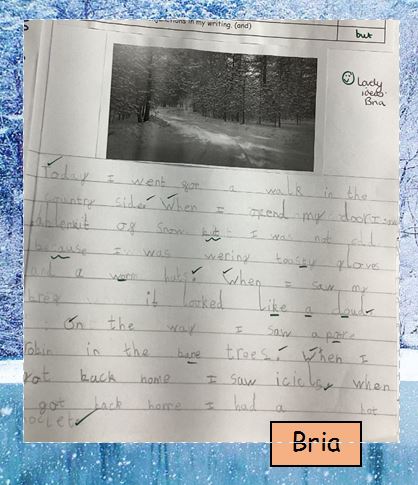 in my writing. (and)
but
Lady
ideas
Bria
Today I went for a walk in the
country side. When I opend my door I saw
of snow but I was not cold
because I was wering toasty gloves
and a worm hats. When I saw my
it looked like a cloud.
On the way I saw a
robin in the bare trees. When I
got back home I saw icicls, when
I got back home I had a hot
Bria